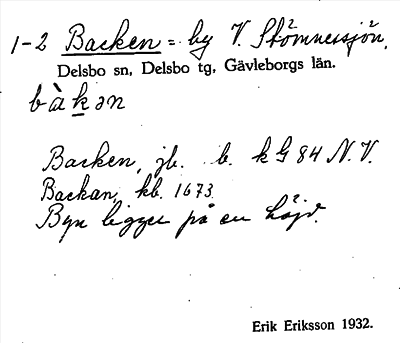 1-2 Backen = by V. Stömnessjön.
Delsbo sn, Delsbo tg, Gävleborgs län.
bàkən
Backen, jb. b. k G 84 N.V.
Backan, kb. 1673.
Byn ligger på en höjd.
Erik Eriksson 1932.